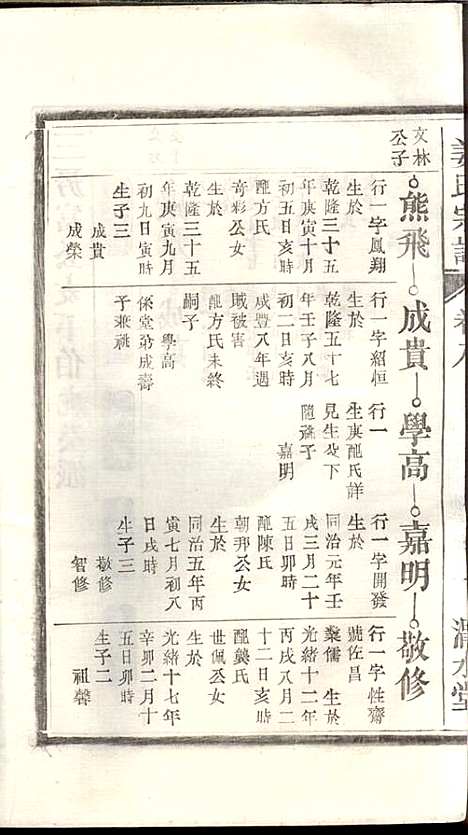 姜氏宗譜
卷八
渭水堂
文林
公子
熊飛
成貴
學高
嘉明
敬修
行一字鳳翔
生於
乾隆三十五
年庚寅十月
初五日亥時
配方氏
奇彩公女
生於
乾隆三十五
年庚寅九月
初九日寅時
生子三
成貴
成榮
行一字紹恒
生於
乾隆五十七
年壬子八月
初二日亥時
咸豐八年遇
賊被害
配方氏未終
嗣子
學高
係堂弟成壽
子兼祧
行一
生庚配氏詳
見生父下
隨養子
嘉明
行一字開發
生於
同治元年壬
戌三月二十
五日卯時
配陳氏
朝邦公女
生於
同治五年丙
寅七月初八
日戌時
生子三
敬修
智修
行一字性齋
號佐昌
業儒 生於
光緒十二年
丙戌八月二
十二日亥時
配龔氏
世佩公女
生於
光緒十七年
辛卯二月十
五日卯時
生子二
祖馨